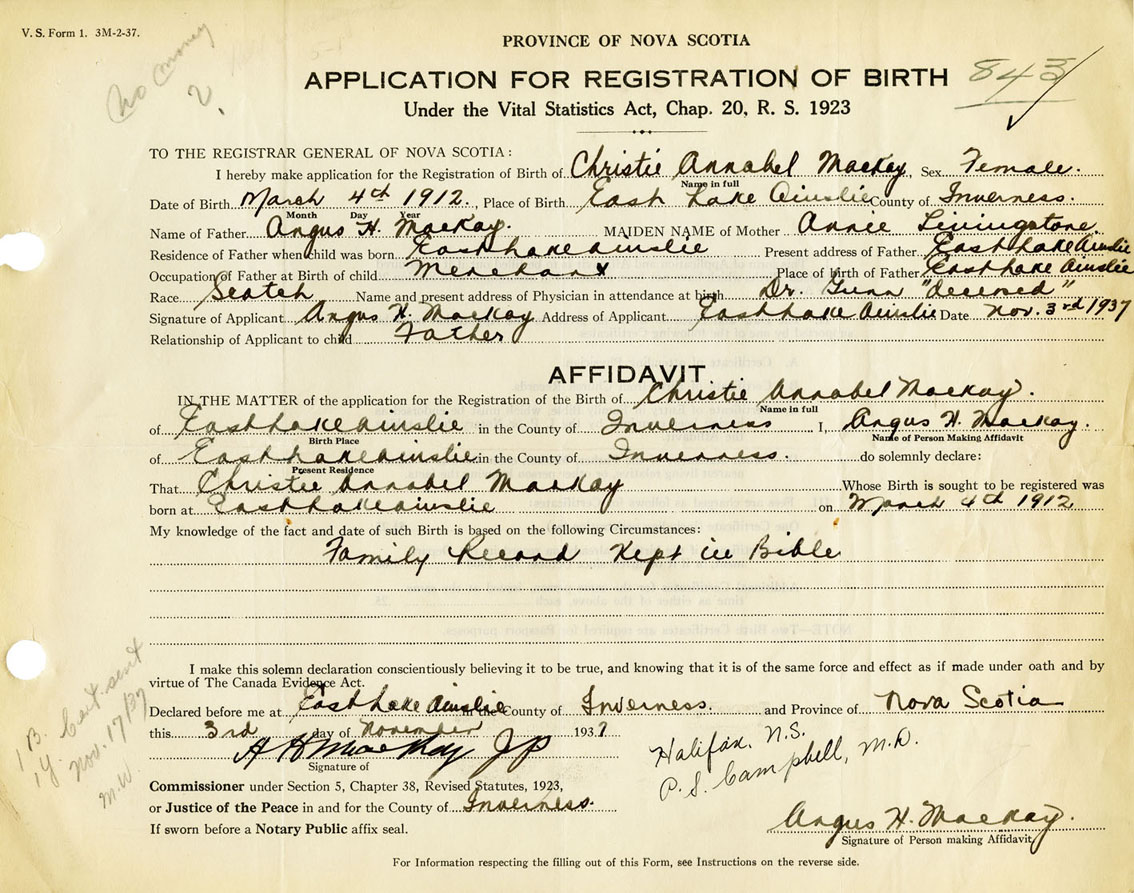 V. S. Form 1. 3M-2-37.
No money
2.
PROVINCE OF NOVA SCOTIA
843
APPLICATION FOR REGISTRATION OF BIRTH
Under the Vital Statistics Act, Chap. 20, R. S. 1923
TO THE REGISTRAR GENERAL OF NOVA SCOTIA:
I hereby make application for the Registration of Birth of Christie Annabel MacKay, Sex Female.
Name in full
Date of Birth March 4th 1912. , Place of Birth East Lake Ainslie County of Inverness.
Month Day Year
Name of Father Angus H. MacKay. MAIDEN NAME of Mother Annie Livingstone.
Residence of Father when child was born East Lake Ainslie Present address of Father East Lake Ainslie
Occupation of Father at Birth of child Merchant Place of birth of Father East Lake Ainslie
Race Scotch Name and present address of Physician in attendance at birth Dr. Gunn "decesed"
Signature of Applicant Angus H. MacKay Address of Applicant East Lake Ainslie Date Nov. 3rd 1937
Relationship of Applicant to child Father
AFFIDAVIT
IN THE MATTER of the application for the Registration of the Birth of Christie Annabel MacKay.
Name in full
of East Lake Ainslie in the County of Inverness I, Angus H. MacKay.
Birth Place Name of Person Making Affidavit
of East Lake Ainslie in the County of Inverness. do solemnly declare:
Present Residence
That Christie Annabel MacKay Whose Birth is sought to be registered was
born at East Lake Ainslie on March 4th 1912
My knowledge of the fact and date of such Birth is based on the following Circumstances:
Family Record Kept in Bible
I make this solemn declaration conscientiously believing it to be true, and knowing that it is of the same force and effect as if made under oath and by
virtue of The Canada Evidence Act.
Declared before me at East Lake Ainslie in the County of Inverness. and Province of Nova Scotia
this 3rd day of November 1937
A H MacKay JP
Signature of
Halifax, N.S.
P.S. Campbell, M.D.
1 B. Cert sent
Nov. 17/37
M.W.
Commissioner under Section 5, Chapter 38, Revised Statutes, 1923,
or Justice of the Peace in and for the County of Inverness.
If sworn before a Notary Public affix seal.
Angus H. MacKay.
Signature of Person making Affidavit
For Information respecting the filling out of this Form, see Instructions on the reverse side.